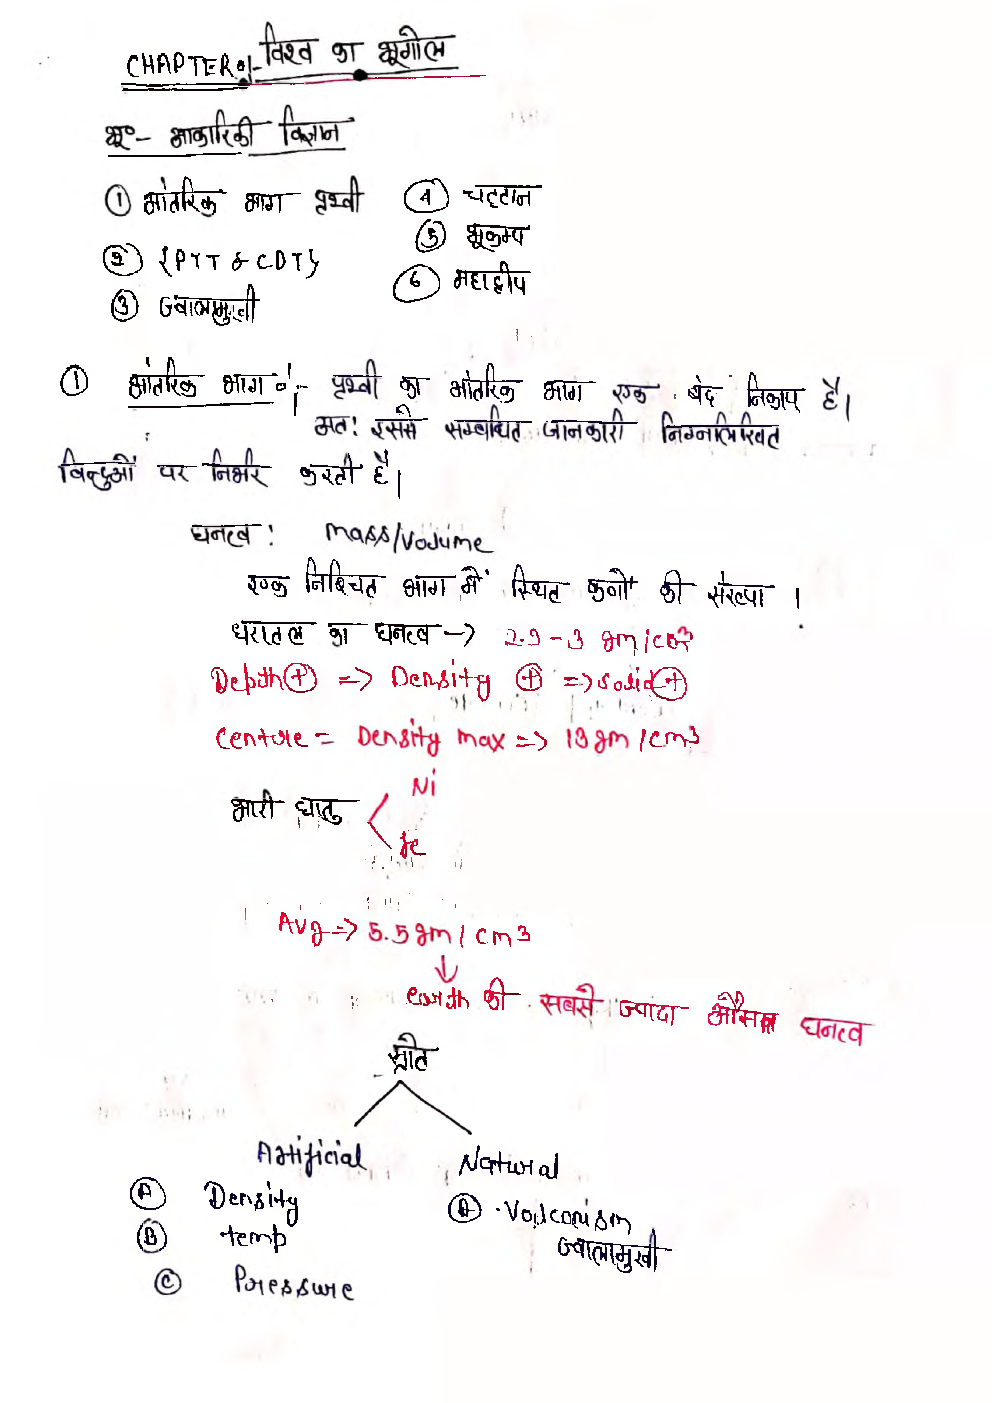 CHAPTER 01- विश्व का भूगोल
भू०- आकारिकी विज्ञान
① आंतरिक भाग पृथ्वी
② {PTT & CDT}
③ ज्वालामुखी
④ चट्टान
⑤ भूकम्प
⑥ महाद्वीप
① आंतरिक भाग :- पृथ्वी का आंतरिक भाग एक बंद निकाय है।
अतः इससे सम्बंधित जानकारी निम्नलिखित
बिन्दुओं पर निर्भर करती है।
घनत्व : mass/volume
एक निश्चित भाग में स्थित कणों की संख्या ।
धरातल का घनत्व -> 2.9-3 gm/cm3
Depth ⊕ => Density ⊕ => solid ⊕
Centre = Density max => 13 gm/cm3
भारी धातु < Ni
fe
Avg => 5.5 gm/cm3
↓
earth की सबसे ज्यादा औसत घनत्व
स्रोत
Artificial
Natural
Ⓐ Density
Ⓑ temp
Ⓒ Pressure
Ⓐ Volcanism
ज्वालामुखी